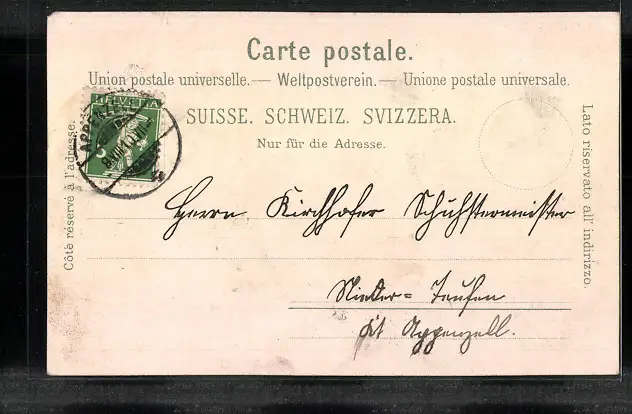 Carte postale.
Union postale universelle. — Weltpostverein. — Unione postale universale.
SUISSE. SCHWEIZ. SVIZZERA.
Nur für die Adresse.
Côté réservé à l'adresse.
Lato riservato all' indirizzo.
HELVETIA
APPENZELL
Herrn Kirchhofer Schuhstermeister
Nieder= Teufen
Kt Appenzell.